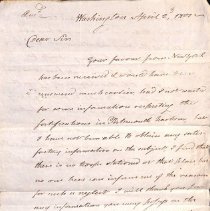 Washington April 2d 1801
Dear Sir
Your favour from New York
has been received & would have been
answered much earlier had I not waited
for some information respecting the
fortifications in Portsmouth harbour, but I
have not been able to obtain any satis-
factory information on the subject I find that
there is no troops stationed at that place but
no one here can inform me of the reason
for such a neglect. I will thank you for
any information you may possess on the